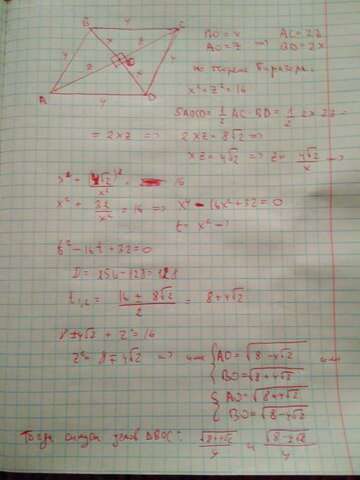 B 4 C
BO = x AC = 2z
AO = z => BD = 2x
x
4 z O 4
z x
A 4 D
по теореме Пифагора.
x² + z² = 16
SABCD = 1/2 AC · BD = 1/2 2x 2z =
= 2xz => 2xz = 8√2 =>
xz = 4√2 => z = 4√2/x =>
x² + (4√2)²/x² = 16
x² + 32/x² = 16 => x⁴ - 16x² + 32 = 0
t = x² =>
t² - 16t + 32 = 0
D = 256 - 128 = 128
t₁,₂ = (16 ± 8√2)/2 = 8 ± 4√2
8 ± 4√2 + z² = 16
z² = 8 ∓ 4√2 => или { AO = √(8 - 4√2) или
BO = √(8 + 4√2)
{ AO = √(8 + 4√2)
BO = √(8 - 4√2)
Тогда синусы углов ΔBOC: √(8 + 4√2)/4 и √(8 - 4√2)/4